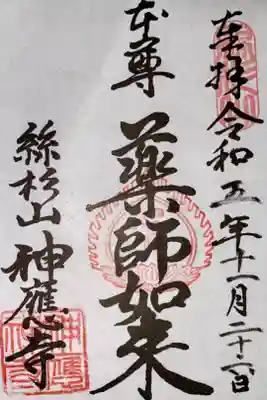 奉拝 令和五年十一月二十二日
本尊
薬師如来
絲杉山 神應寺